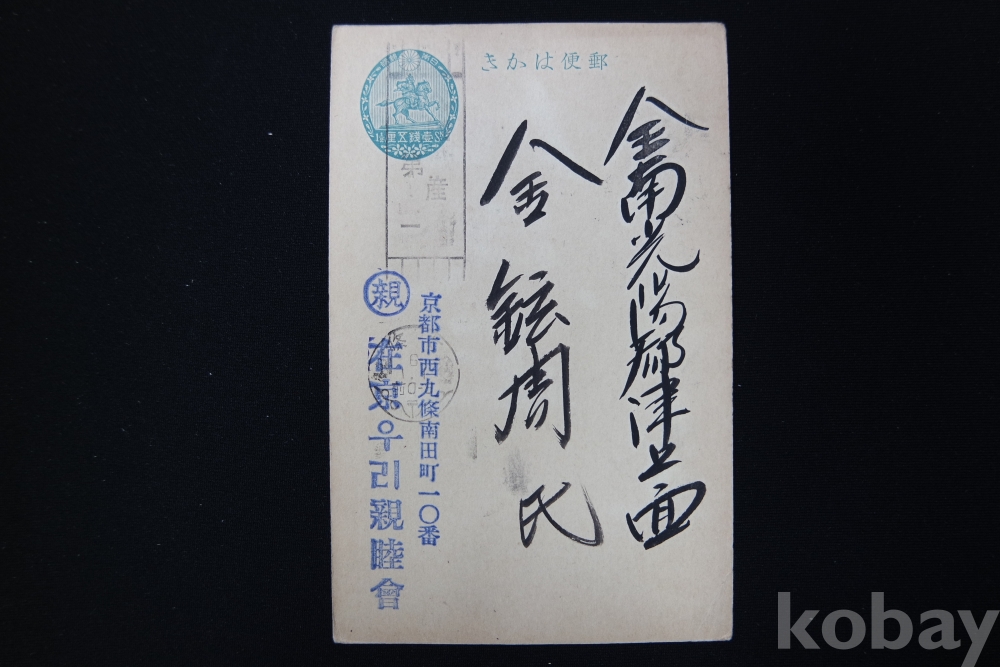 郵便はかき
全南光陽郡津上面
金鉉周氏
京都市西九條南田町一〇番
親
在京우리親睦會
第一
産
kobay